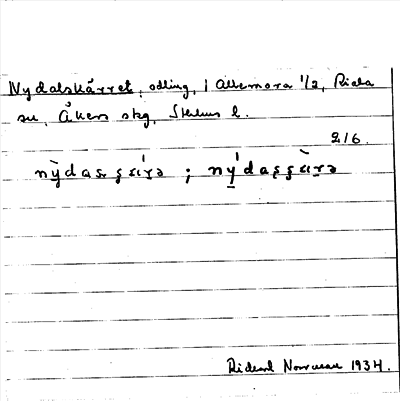 Nydalskärret, odling, i Allmora 1/2, Riala
sn, Åkers skg, Sthlms l.
216.
nỳdas ʂæ̀rə ; nýdasʂæ̀rə
Rickard Norrman 1934.